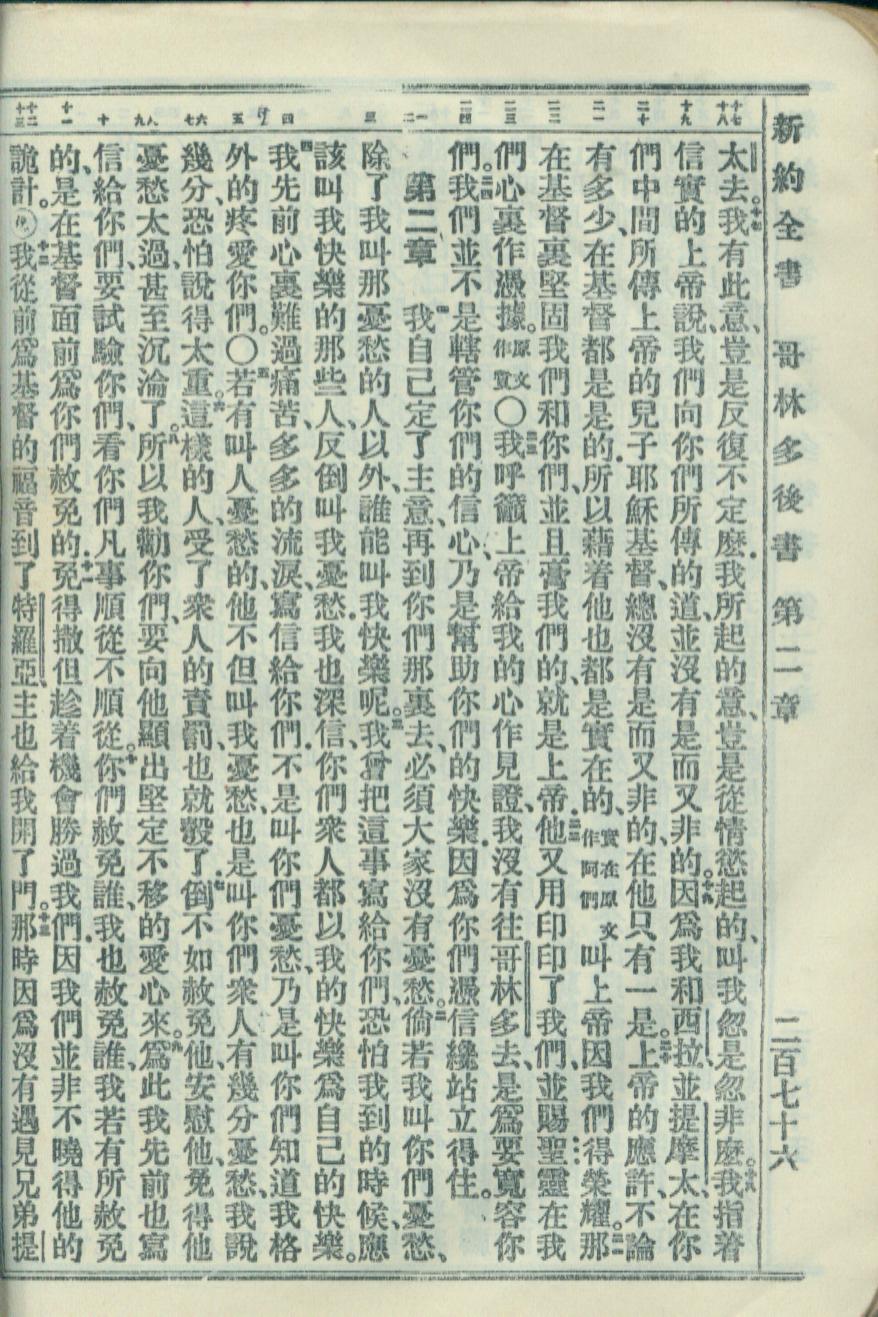 新約全書 哥林多後書 第二章 二百七十六
十七 十八 十九 二十 二一 二二 二三 二四 一 二 三 四 五 六 七 八 九 十 十一 十二 十三
太去。十七我有此意、豈是反復不定麽．我所起的意、豈是從情慾起的、叫我忽是忽非麽。十八我指着
信實的上帝說、我們向你們所傳的道、並沒有是而又非的。十九因爲我和西拉、並提摩太、在你
們中間、所傳上帝的兒子．耶穌基督、總沒有是而又非的、在他只有一是。二十上帝的應許、不論
有多少、在基督都是是的、所以藉着他也都是實在的、實在原文作阿們叫上帝因我們得榮耀。二一那
在基督裏堅固我們和你們、並且膏我們的、就是上帝、二二他又用印印了我們、並賜聖靈在我
們心裏作憑據。原文作質〇二三我呼籲上帝給我的心作見證、我沒有往哥林多去、是爲要寬容你
們。二四我們並不是轄管你們的信心、乃是幫助你們的快樂．因爲你們憑信纔站立得住。
第二章 一我自己定了主意、再到你們那裏去、必須大家沒有憂愁。二倘若我叫你們憂愁、
除了我叫那憂愁的人以外、誰能叫我快樂呢。三我曾把這事寫給你們、恐怕我到的時候、應
該叫我快樂的那些人、反倒叫我憂愁．我也深信、你們衆人都以我的快樂爲自己的快樂。
四我先前心裏難過痛苦、多多的流淚、寫信給你們．不是叫你們憂愁、乃是叫你們知道我格
外的疼愛你們。〇五若有叫人憂愁的、他不但叫我憂愁、也是叫你們衆人有幾分憂愁、我說
幾分、恐怕說得太重。六這樣的人、受了衆人的責罰、也就彀了．七倒不如赦免他、安慰他、免得他
憂愁太過、甚至沉淪了。八所以我勸你們、要向他顯出堅定不移的愛心來。九爲此我先前也寫
信給你們、要試驗你們、看你們凡事順從不順從。十你們赦免誰、我也赦免誰、我若有所赦免
的、是在基督面前爲你們赦免的．十一免得撒但趁着機會勝過我們．因我們並非不曉得他的
詭計。〇十二我從前爲基督的福音到了特羅亞、主也給我開了門。十三那時因爲沒有遇見兄弟提